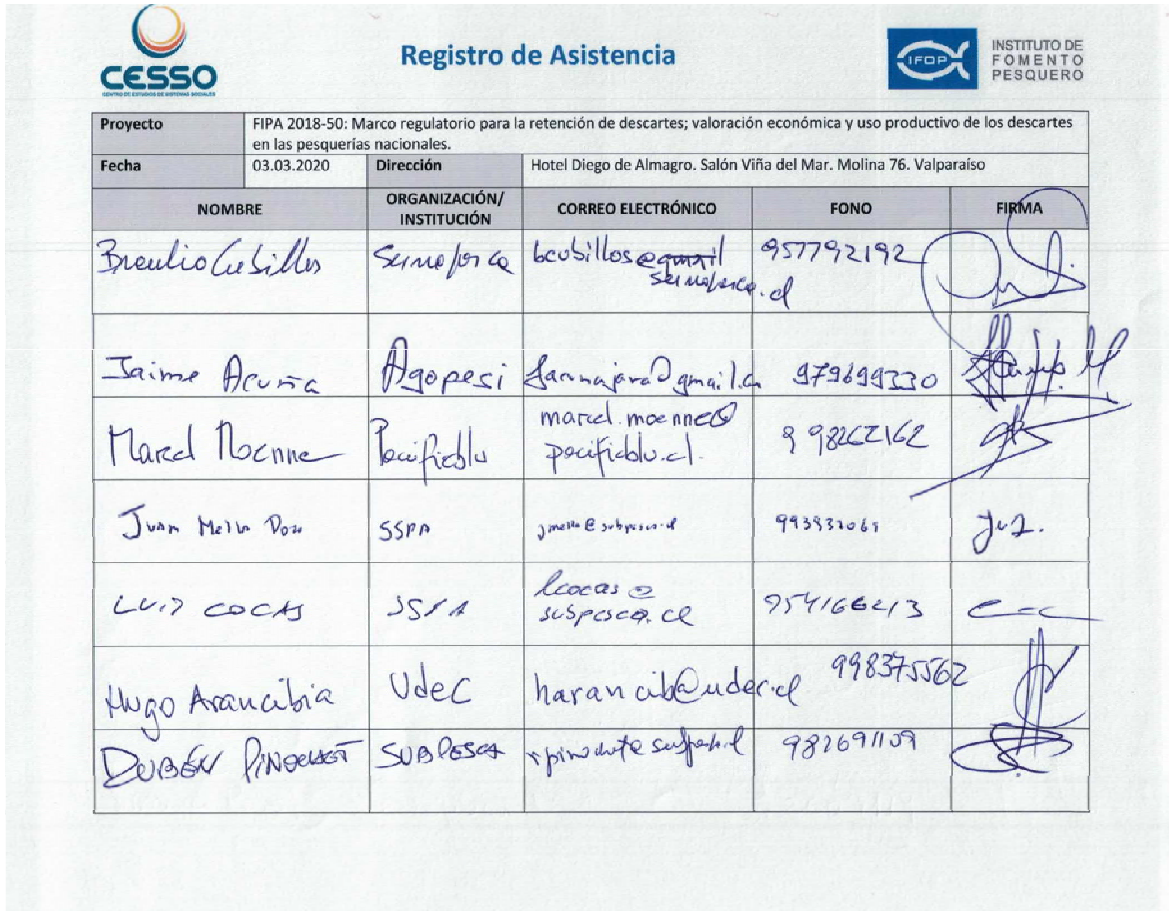 CESSO
CENTRO DE ESTUDIOS DE SISTEMAS SOCIALES
Registro de Asistencia
IFOP
INSTITUTO DE
FOMENTO
PESQUERO
Proyecto
FIPA 2018-50: Marco regulatorio para la retención de descartes; valoración económica y uso productivo de los descartes
en las pesquerías nacionales.
Fecha 03.03.2020 Dirección Hotel Diego de Almagro. Salón Viña del Mar. Molina 76. Valparaíso
NOMBRE ORGANIZACIÓN/ INSTITUCIÓN CORREO ELECTRÓNICO FONO FIRMA
Braulio Cubillos Sernapesca bcubillos@gmail 957792192
sernapesca.cl
Jaime Acuña Agopesi 979699330
Marcel Moenne Pacificblu marcel.moenne@ 998262162
pacificblu.cl.
Juan SSPA
LUIS COCAS SSPA lcocas@ 954166213
subpesca.cl
Hugo Arancibia UdeC harancib@udec.cl 998375562
PINOCHET SUBPESCA